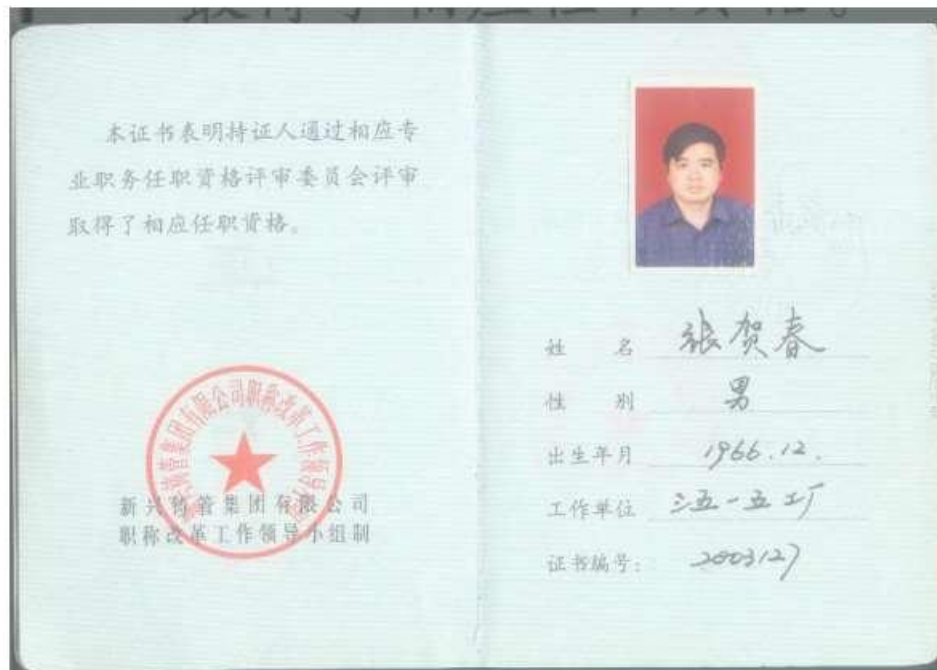 取得了相应任职资格。
本证书表明持证人通过相应专
业职务任职资格评审委员会评审
取得了相应任职资格。
新兴铸管集团有限公司职称改革工作领导小组
新兴铸管集团有限公司
职称改革工作领导小组制
姓 名 张贺春
性 别 男
出生年月 1966.12.
工作单位 三五一五工厂
证书编号: 2003127